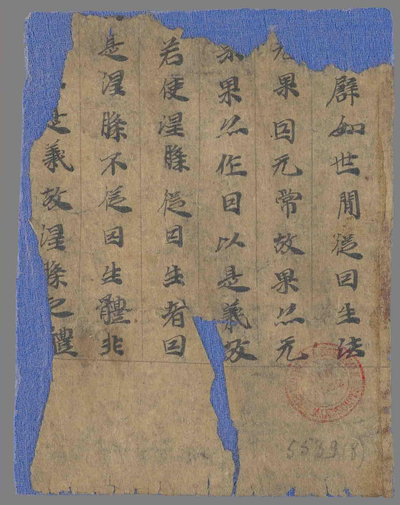 辟如世間從囙生法
无果囙无常故果亦无
果果亦作囙以是義故
若使涅槃從囙生者囙
是涅槃不從囙生體非
是義故涅槃之體
5539(8)